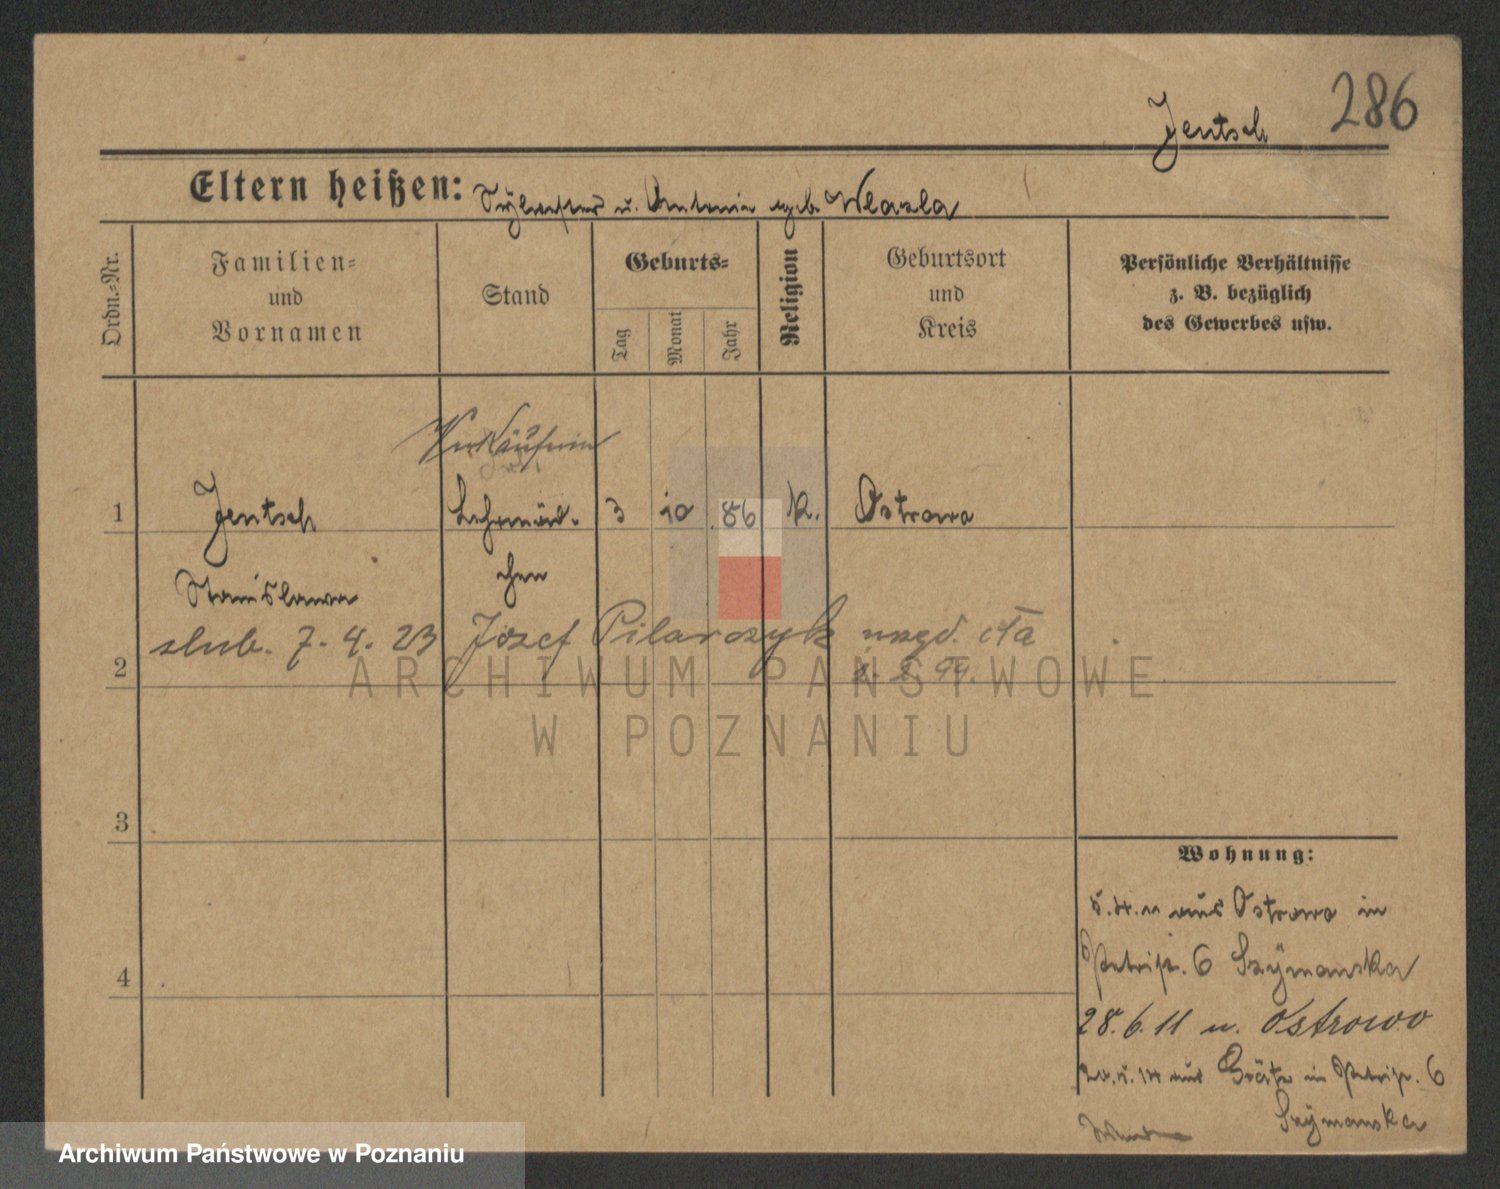 286
Jentsch
Eltern heißen: Sylvester u. Antonie geb. Wlazla
Ordn.=Nr.
Familien=
und
Vornamen
Stand
Geburts=
Tag
Monat
Jahr
Religion
Geburtsort
und
Kreis
Persönliche Verhältnisse
z. B. bezüglich
des Gewerbes usw.
Verkäuferin
1 Jentsch Lehrmäd- 3 10 86 k. Ostrowo
Stanislawa chen
slub. 7. 4. 23 Józef Pilarczyk
2
3
4
Wohnung:
aus Ostrowo in
Petristr. 6 Szymanska
28.6.11 n. Ostrowo
aus Grätz in Petristr. 6
Szymanska
ARCHIWUM PAŃSTWOWE
W POZNANIU
Archiwum Państwowe w Poznaniu